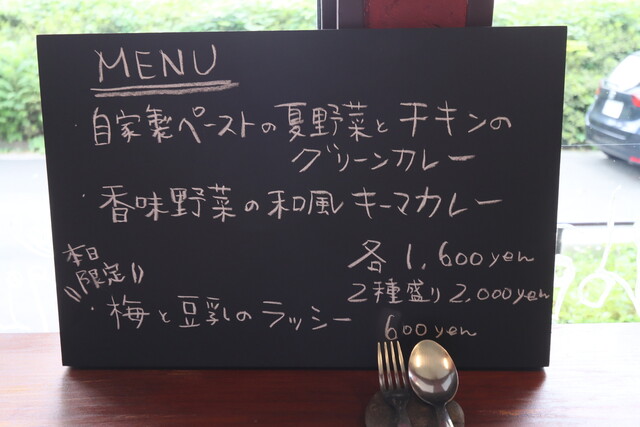 MENU
・自家製ペーストの夏野菜とチキンの
グリーンカレー
・香味野菜の和風キーマカレー
各1,600yen
2種盛り2,000yen
本日
限定
・梅と豆乳のラッシー 600yen